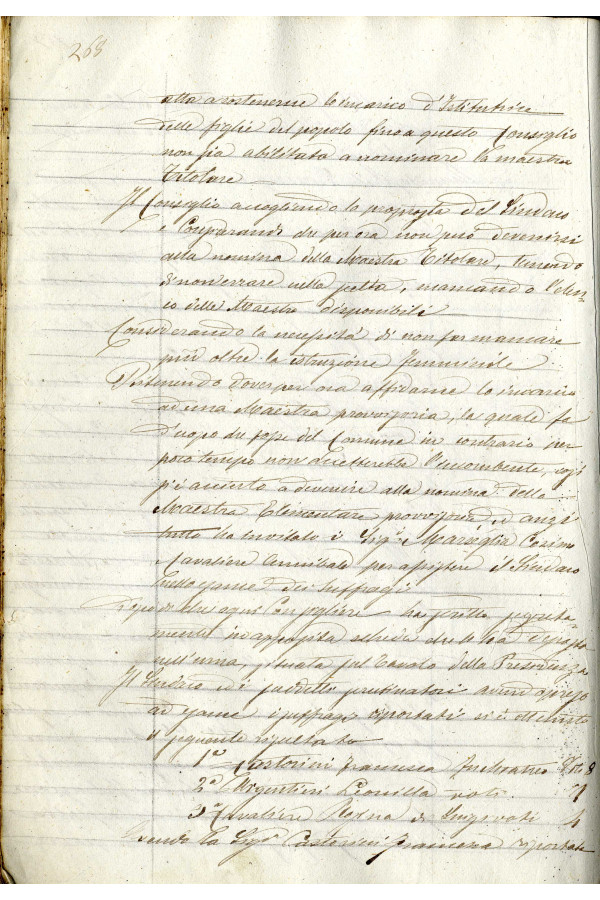 268
atta a sostenerne l'incarico d'Istitutrice
delle figlie del popolo fino a questo Consiglio
non sia abilitata a nominare la maestra
titolare
Il Consiglio accogliendo la proposta del Sindaco
e Comparando che per ora non può devenirsi
alla nomina della Maestra Titolare, temendo
di non errare nella scelta, mancando l'elen-
co delle Maestre disponibili
Considerando la necessità di non far mancare
più oltre la istruzione femminile
Ritenendo dover per ora affidarne lo incarico
ad una Maestra provvisoria, la quale fa
d'uopo che sopra del Comune in contrario per
poco tempo non accetterebbe l'incombente, così
si è venuto a devenire alla nomina della
Maestra Elementare provvisoria, ed anzi
tutto ha invitato i Sigri Mareglia Cosimo
Cavaliere Annibale per assistere il Sindaco
nello esame dei suffragi
Dopo di che ogni Consigliere ha scritto segreta-
mente in apposita scheda che le ha deposta
nell'urna, situata sul tavolo della Presidenza
Il Sindaco ed i suddetti scrutinatori avendo preso
ad esame i suffragi riportati si è ottenuto
il seguente risultato
1o Castorini Francesca 8
2o Argentieri Leonilla voti 7
3o Cavaliere Rosina di voti 4
Avendo la Sigra Castorini Francesca riportato